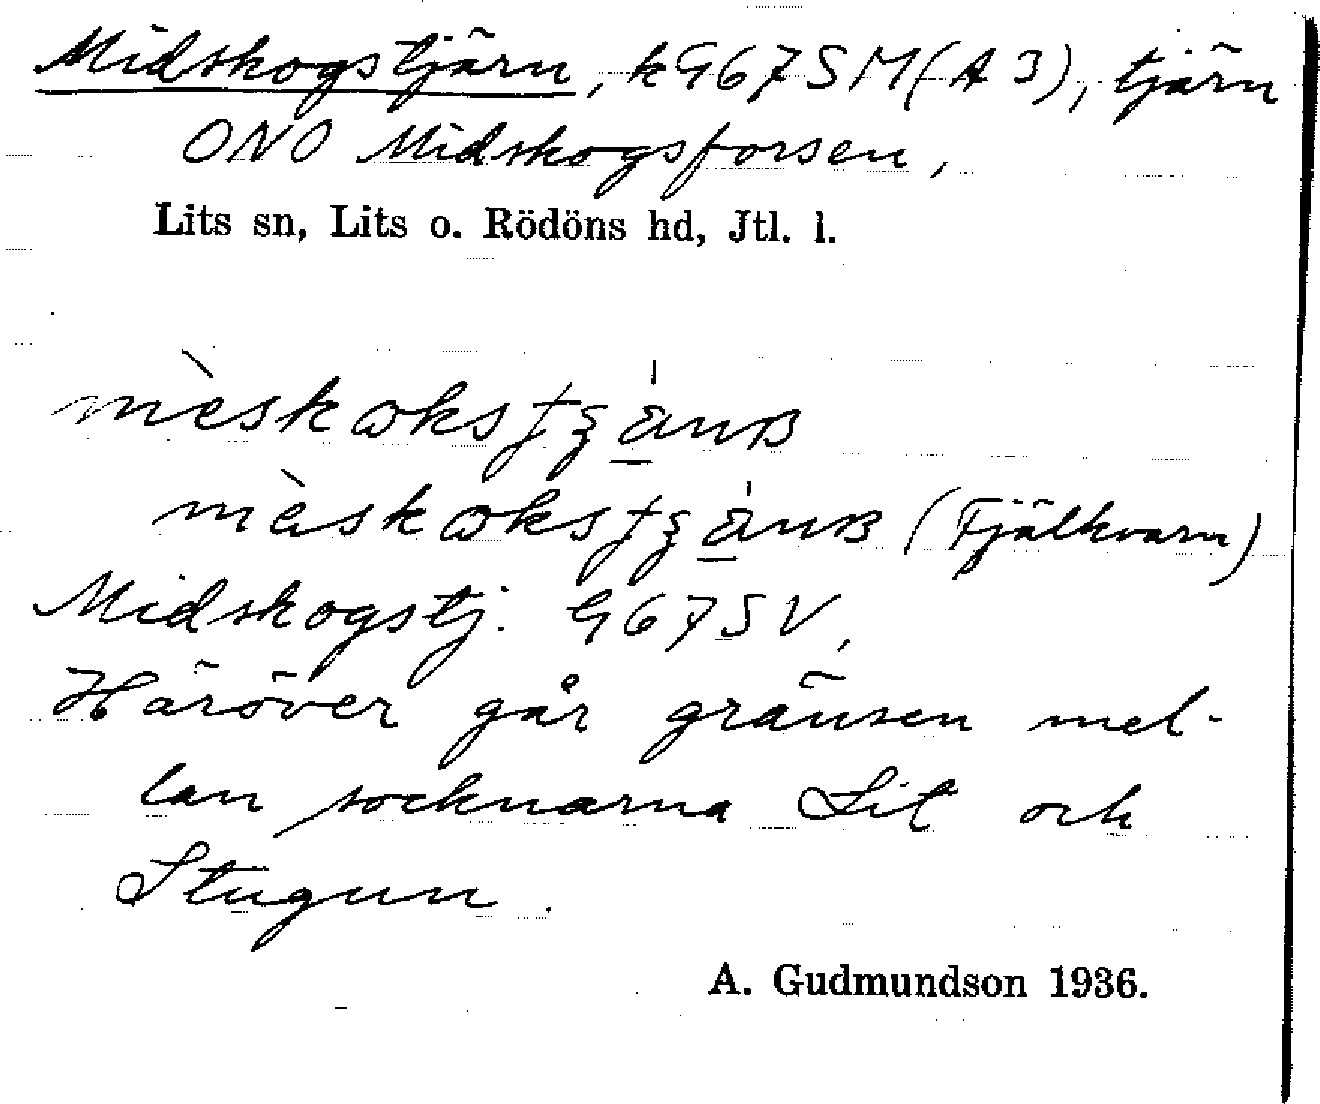 Midskogstjärn, k G67SM(A3), tjärn
ONO Midskogsforsen,
Lits sn, Lits o. Rödöns hd, Jtl. l.
(Fjälkvarn)
Midskogstj. G67SV,
Häröver går gränsen mel-
lan socknarna Lit och
Stugun.
A. Gudmundson 1936.